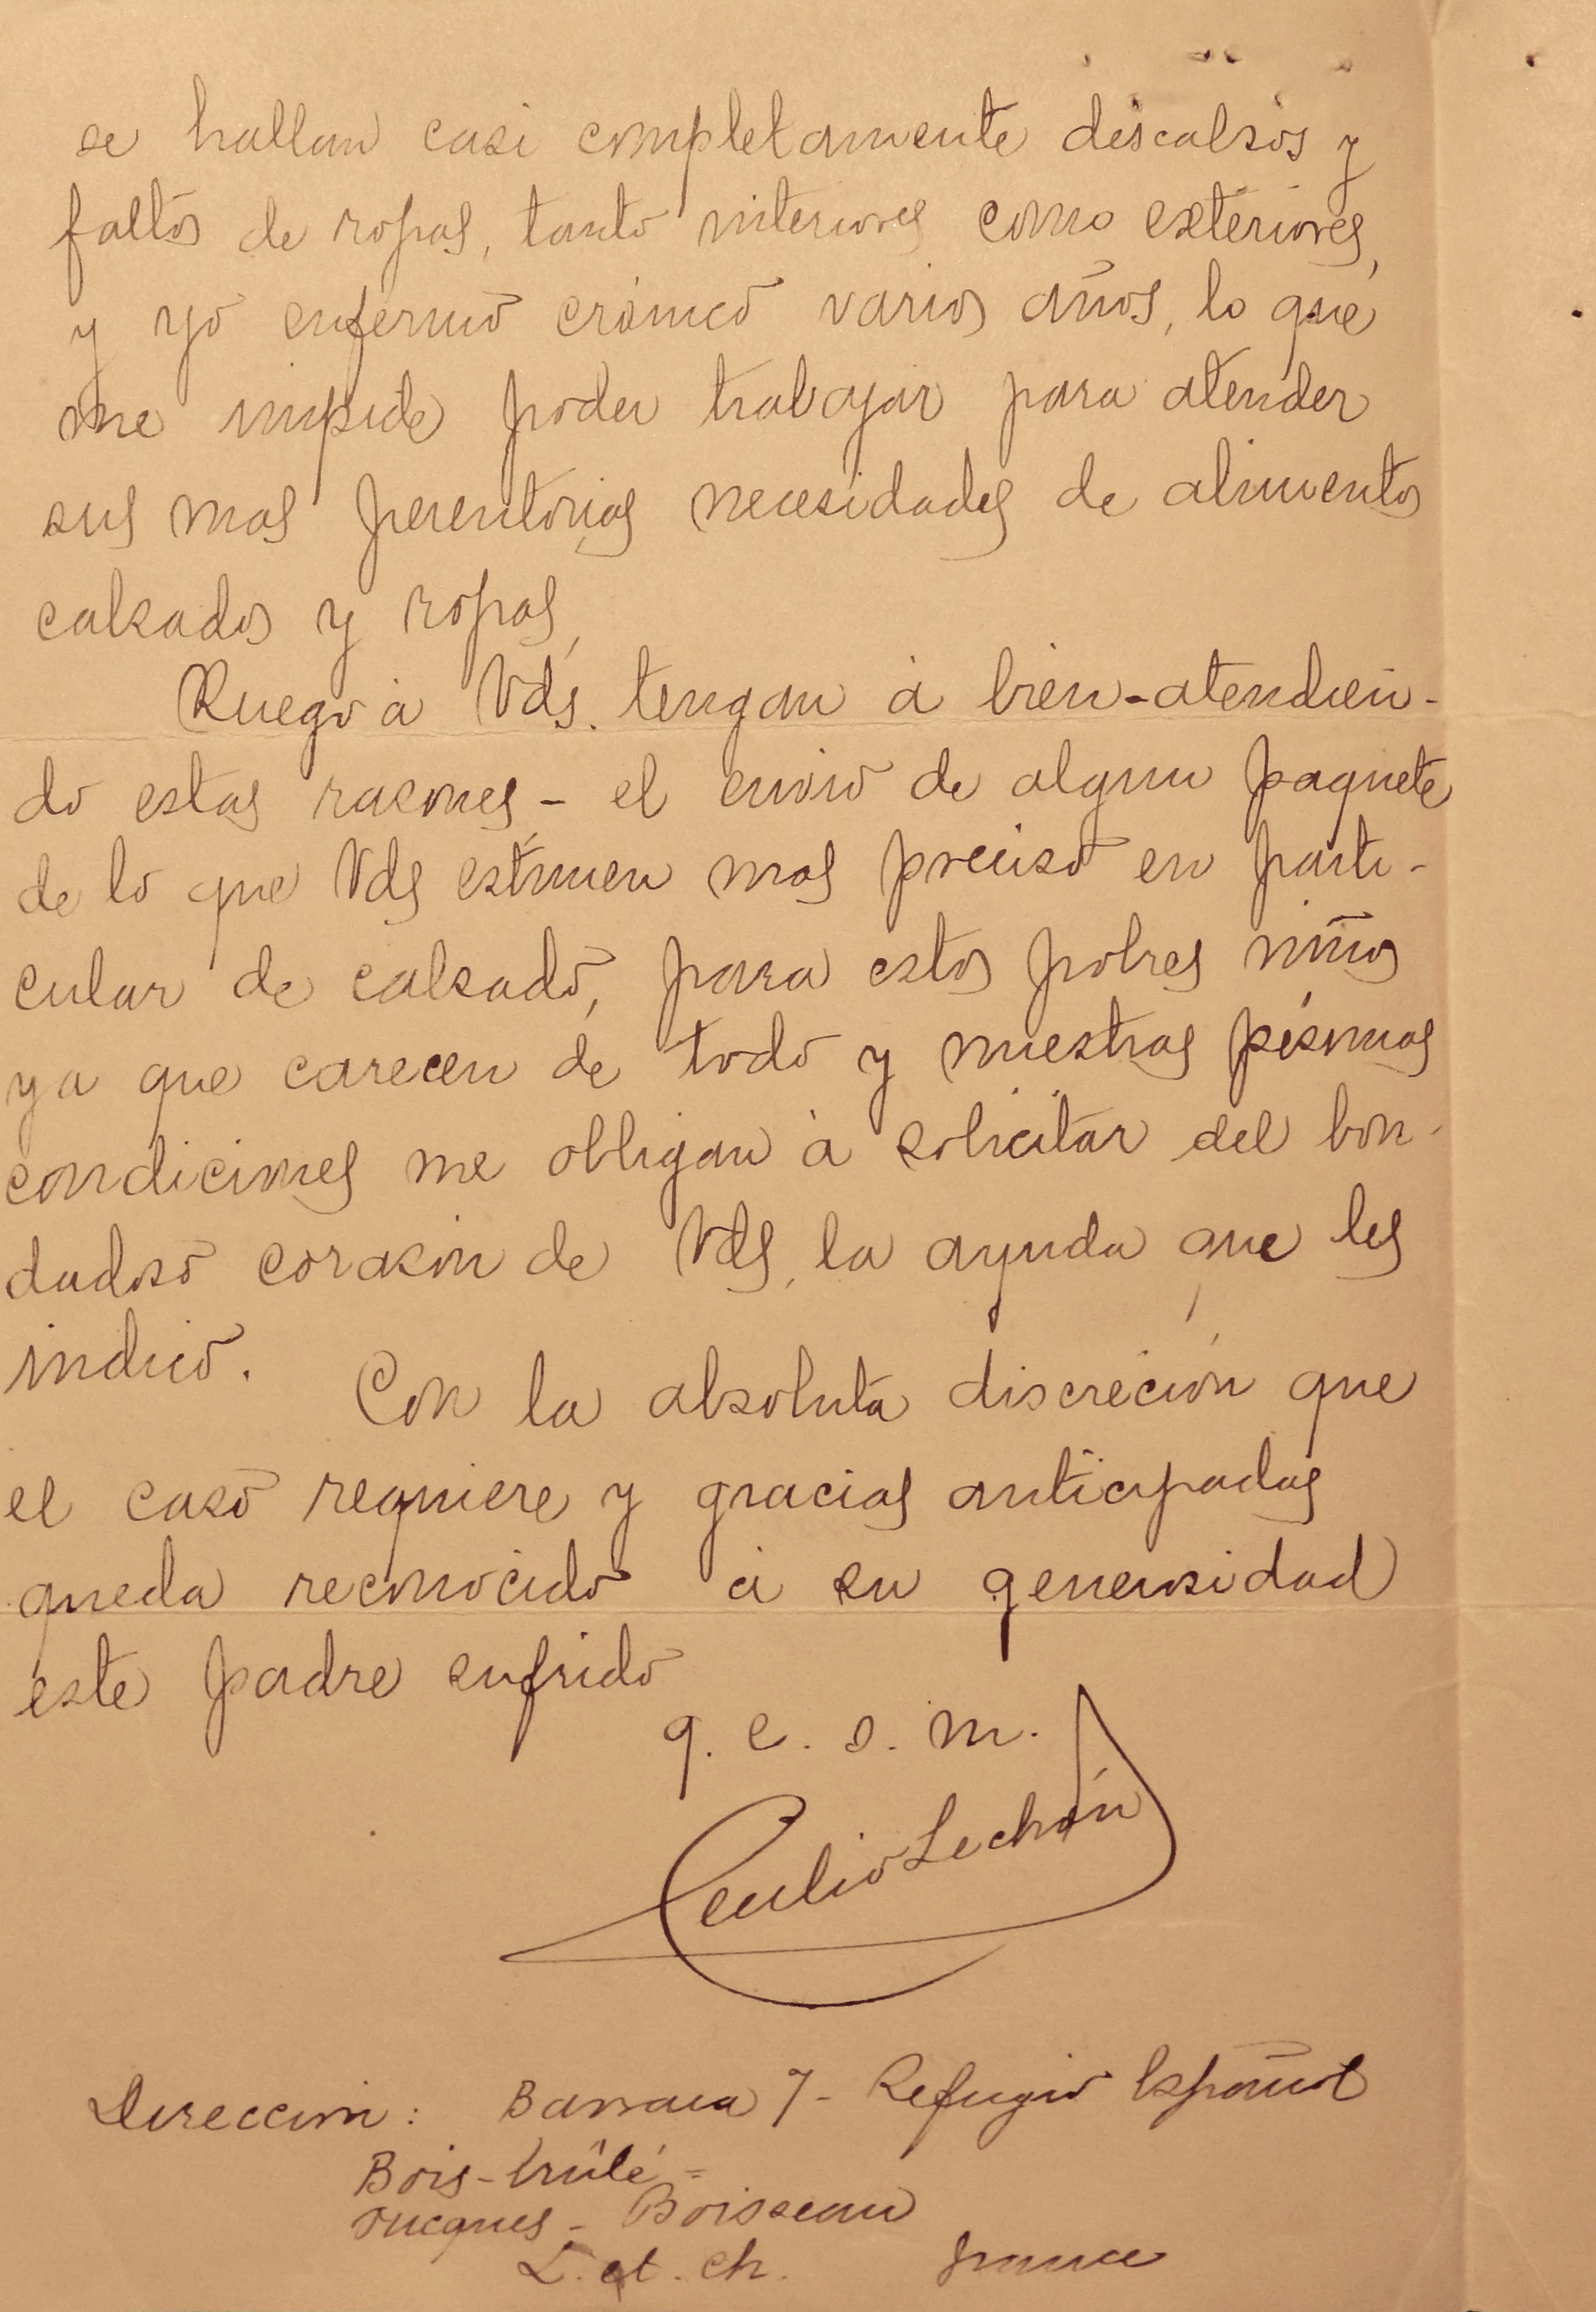 se hallan casi completamente descalsos y
faltos de ropas, tanto interiores como exteriores,
y yo enfermo crónico varios años, lo que
me impide poder trabajar para atender
sus mas perentorias necesidades de alimentos
calsados y ropas,
Ruego á Vds. tengan á bien-atendien-
do estas rasones- el envio de algun paquete
de lo que Vds estimen mas preciso en parti-
cular de calsado, para estos pobres niños
ya que carecen de todo y nuestras pésimas
condiciones me obligan á solicitar del bon-
dadoso corasón de Vds, la ayuda que les
indico. Con la absoluta discreción que
el caso requiere y gracias anticipadas
queda reconocido á su generosidad
este padre sufrido
q. e. s. m.
Lechón
Direccion: Barraca 7- Refugio Español
Bois-brûlé =
Rucques - Boisseau
L. et. Ch. france